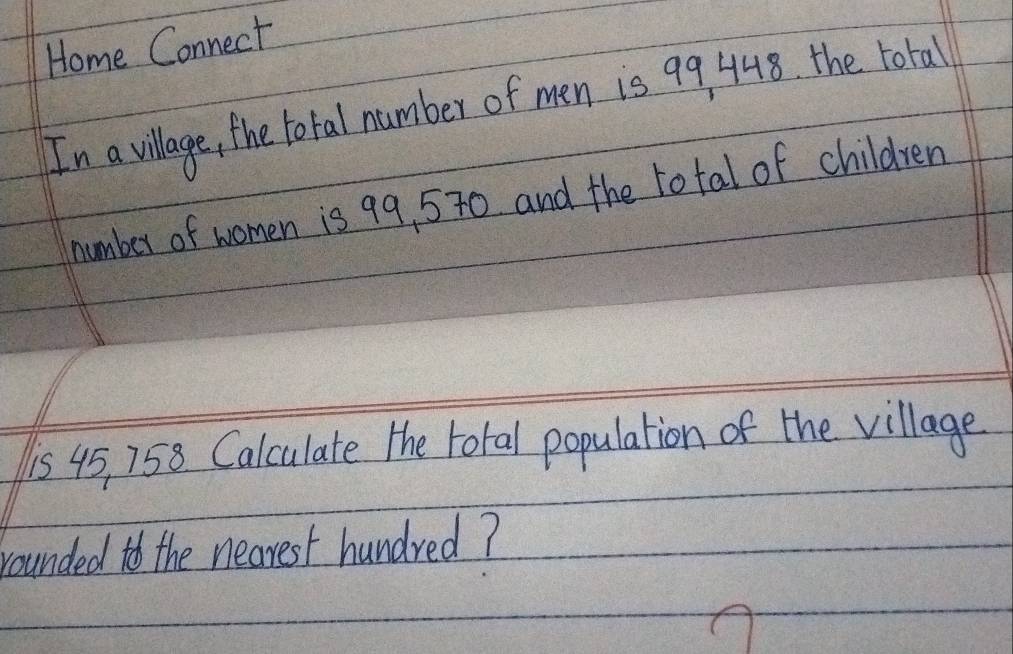 Home Connect
In a village, the total number of men is 99,448. the total
number of women is 99,570 and the total of children
is 45,758 Calculate the total population of the village
rounded to the nearest hundred?